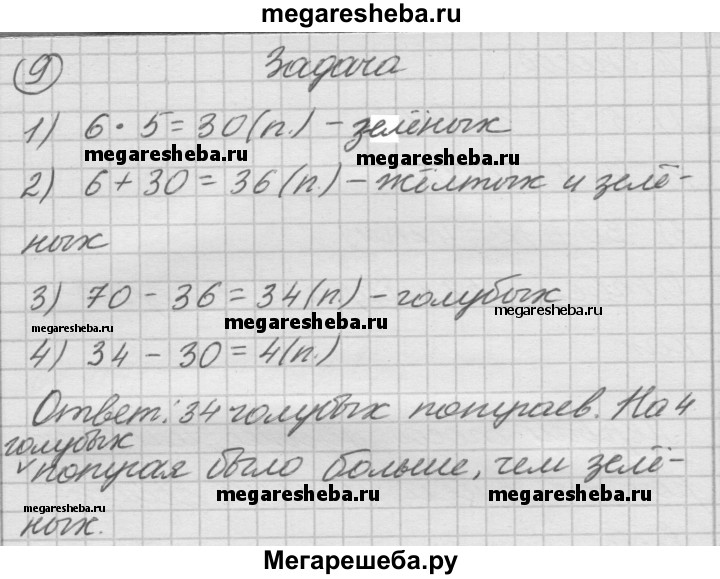 megaresheba.ru
9 Задача
1) 6 · 5 = 30 (п.) – зелёных
megaresheba.ru megaresheba.ru
2) 6 + 30 = 36 (п.) – жёлтых и зелё-
ных
3) 70 – 36 = 34 (п.) – голубых
megaresheba.ru megaresheba.ru megaresheba.ru
4) 34 – 30 = 4 (п.)
Ответ: 34 голубых попугаев. На 4
голубых
√ попугая было больше, чем зелё-
megaresheba.ru megaresheba.ru megaresheba.ru
ных.
Мегарешеба.ру